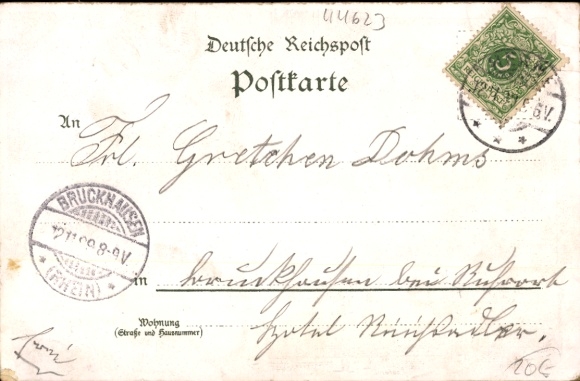 44623
Deutsche Reichspost
Postkarte
An Frl. Gretchen Dohms
BRUCKHAUSEN
12 11 99 8-9V.
* (RHEIN) *
in Bruckhausen bei Ruhrort
Wohnung
(Straße und Hausnummer)
Hotel
5
20€